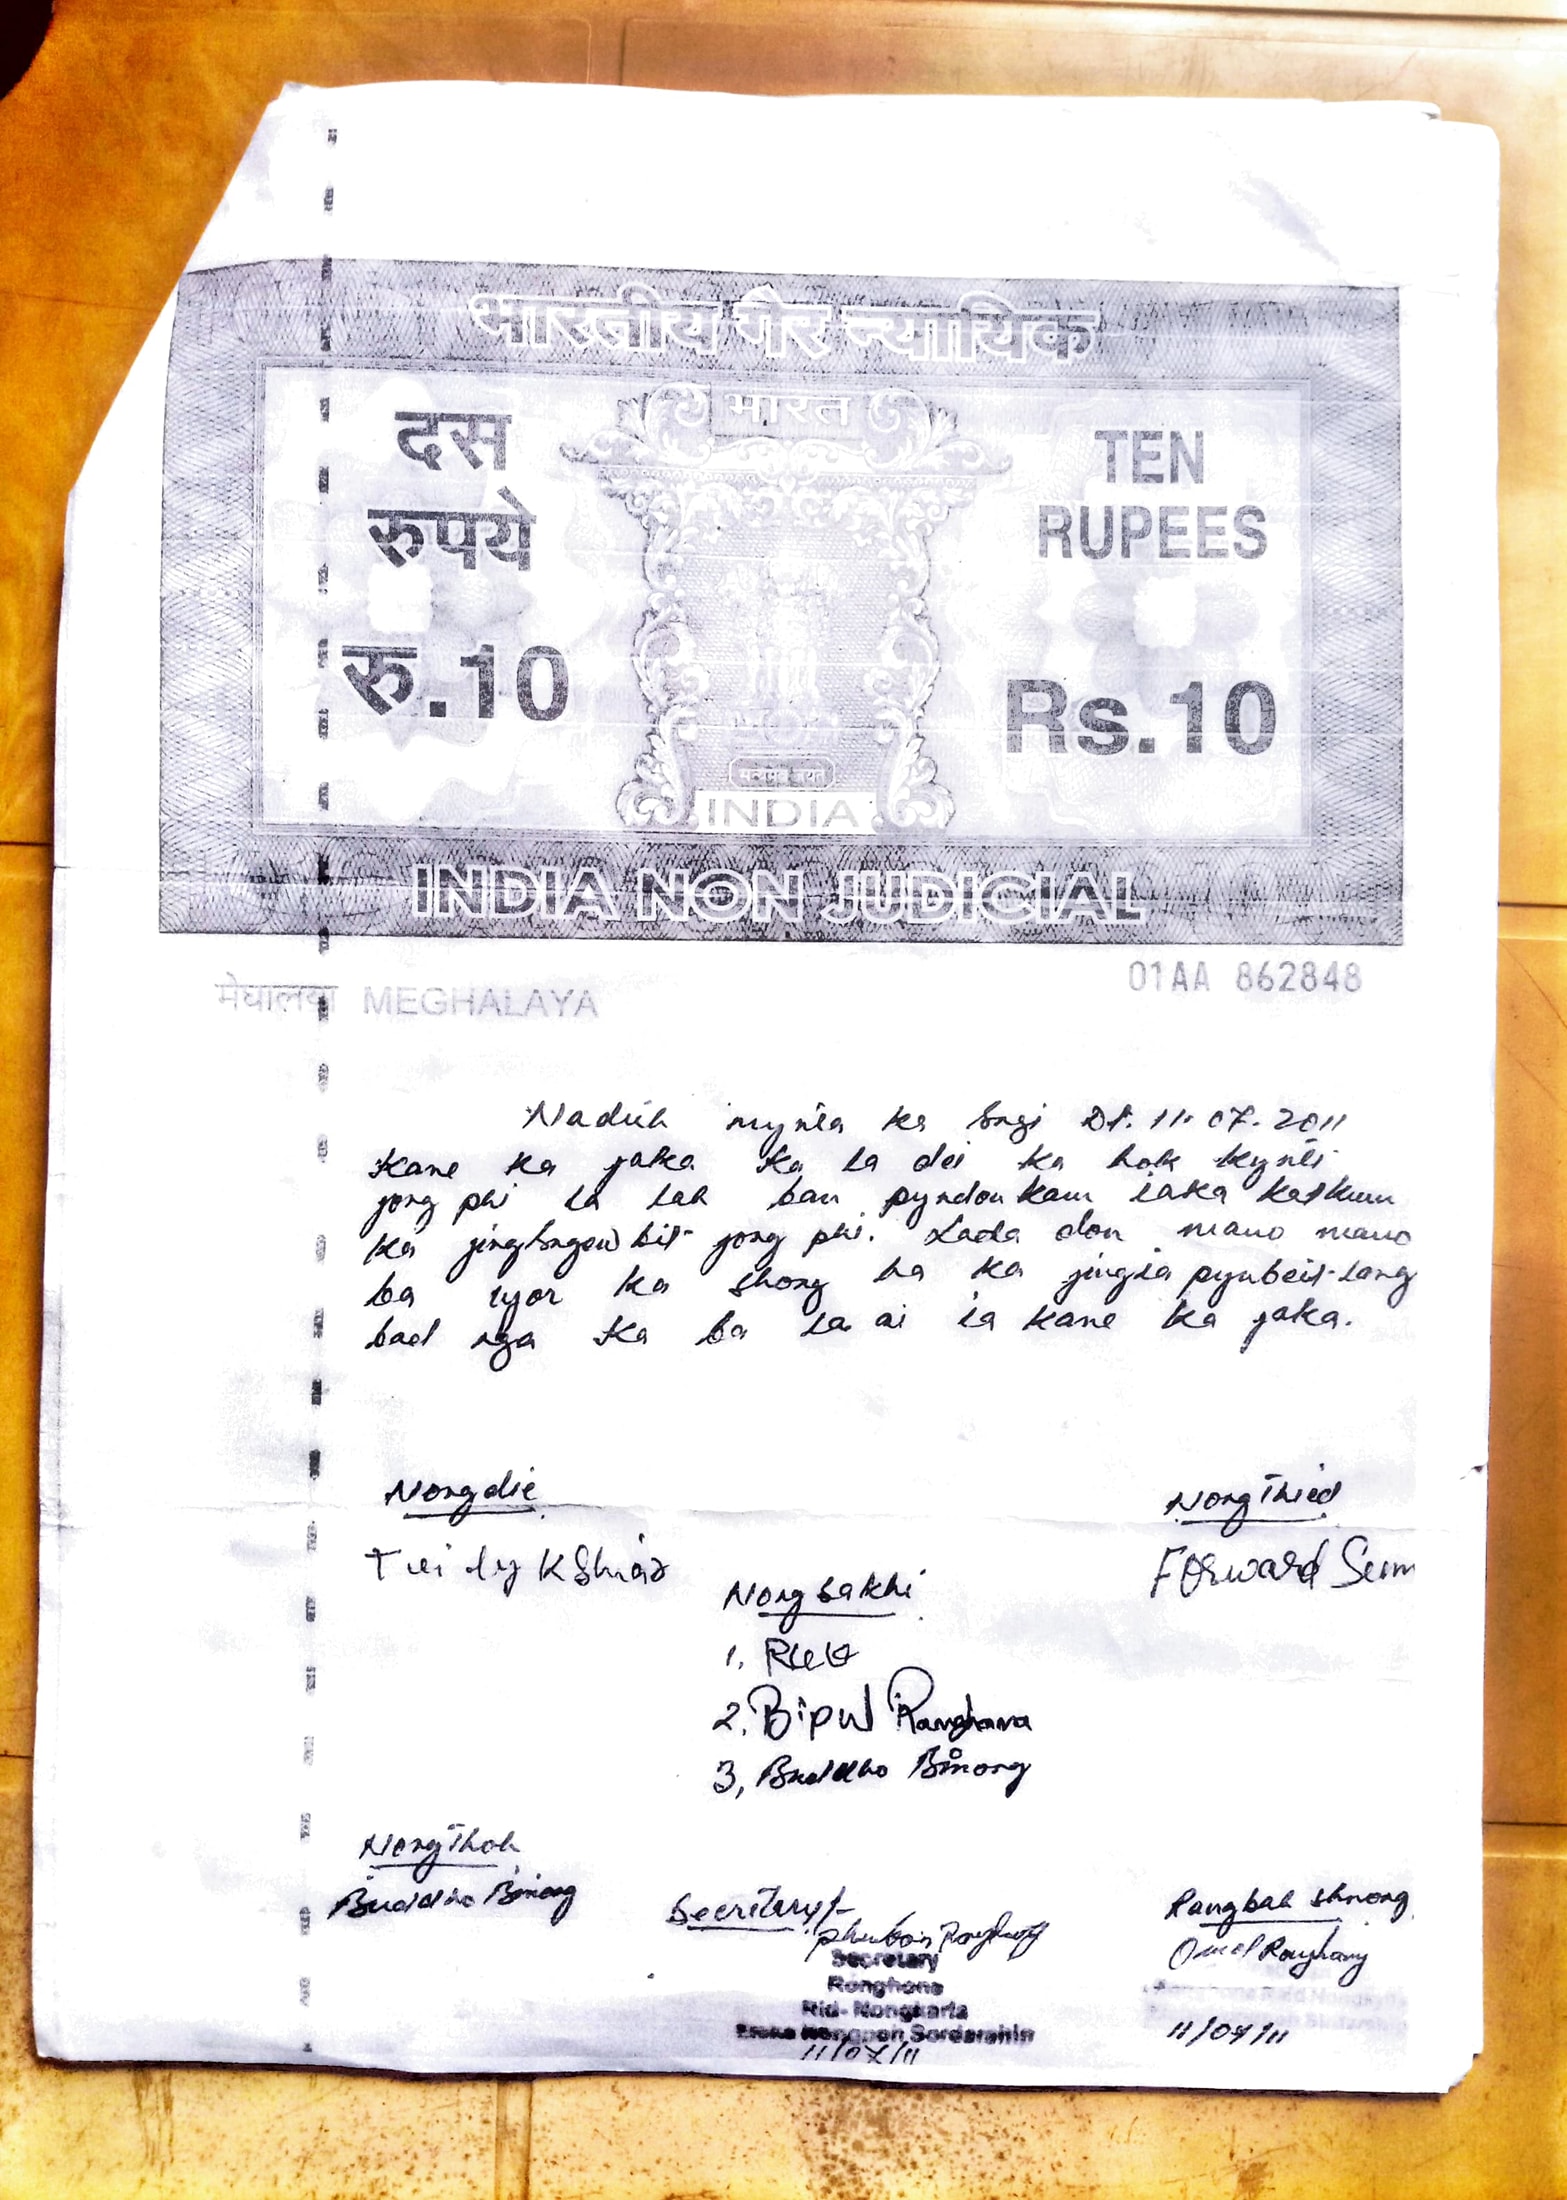 भारतीय गैर न्यायिक
भारत
दस
रुपये
रु.10
TEN
RUPEES
Rs.10
सत्यमेव जयते
INDIA
INDIA NON JUDICIAL
01AA 862848
मेघालय MEGHALAYA
Naduh mynta ka sngi Dt. 11.07.2011
Kane ka jaka ka la dei ka hok kynti
jong phi la lah ban pyndonkam iaka katkum
ka jingsngewbit jong phi. Lada don mano mano
ba wor ka shong ha ka jingia pynbeit lang
bad nga ka ba la ai ia kane ka jaka.
Nongdie
NongThied
Forward Seim
Nongsakhi
1.
2. Ronghona
3, Buddho Binong
NongThoh
Buddho Binong
Secretary
Rangbah Shnong
Secretary
Ronghona
Rid- Nongkarla
Nongpoh Sordarship
11/07/11
11/07/11